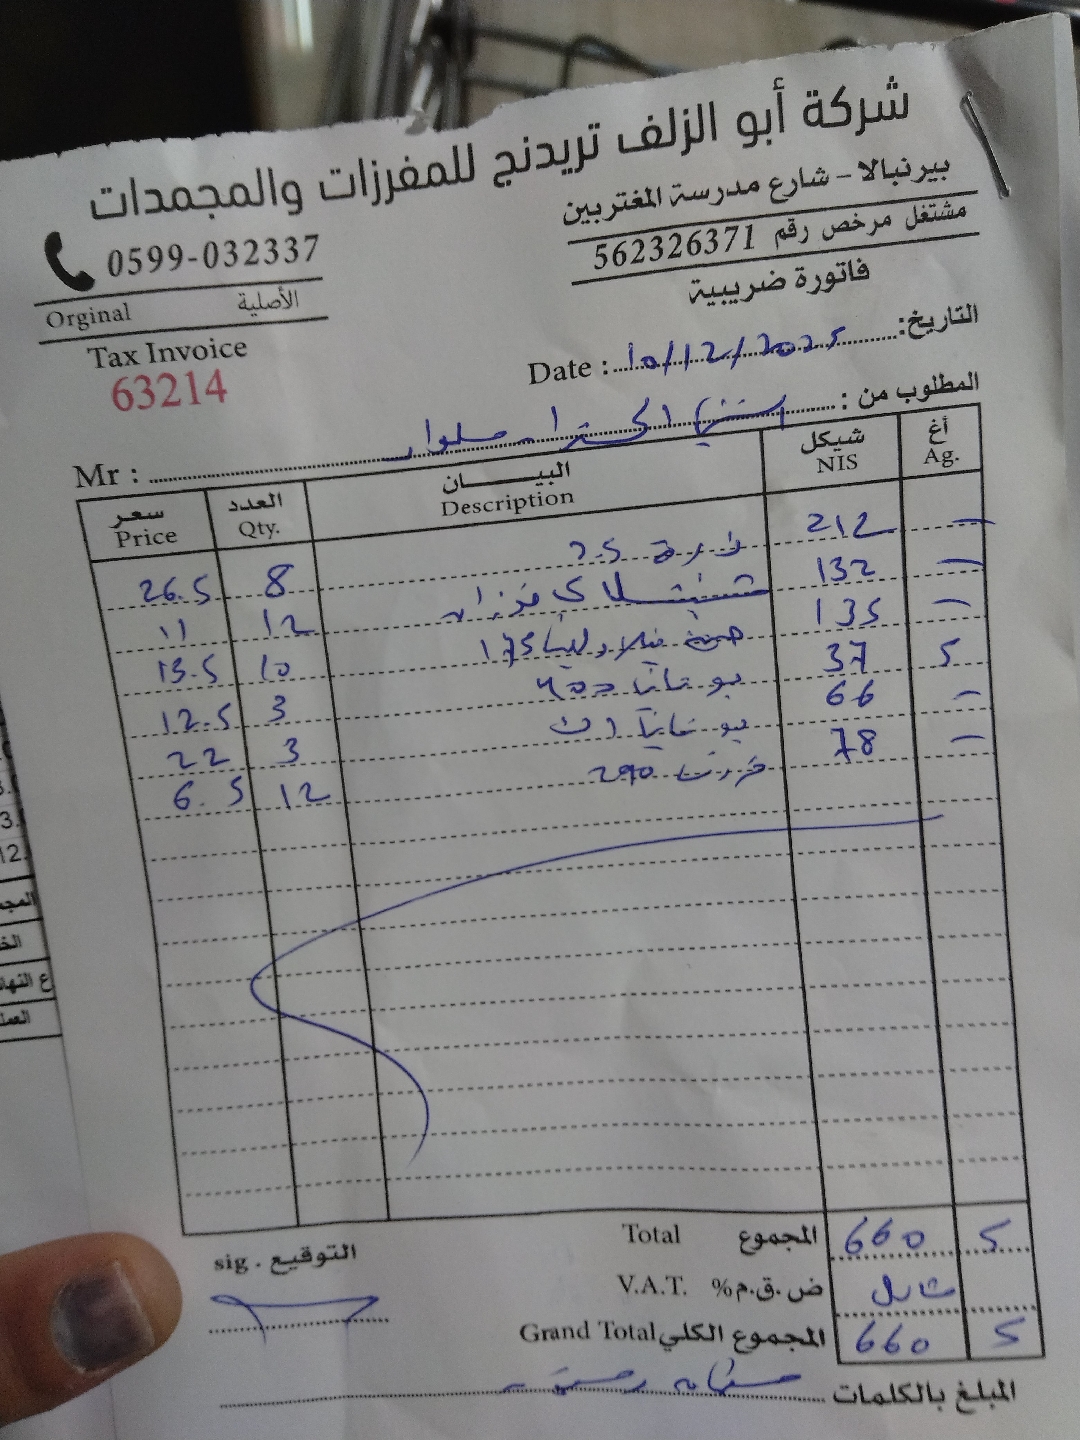 شركة أبو الزلف تريدنج للمفرزات والمجمدات
بيرنبالا - شارع مدرسة المغتربين
مشتغل مرخص رقم 562326371
فاتورة ضريبية
0599-032337
Orginal الأصلية
Tax Invoice
63214
Date : 10/12/2025 التاريخ:
Mr : المطلوب من :
سعر العدد البيـــان شيكل أغ
Price Qty. Description NIS Ag.
26.5 8 ذرة 2.5 212 -
11 12 132 -
13.5 10 175 135 -
12.5 3 400 37 5
22 3 66 -
6.5 12 290 78 -
Total المجموع 660 5
V.A.T. ض.ق.م% شامل
Grand Total المجموع الكلي 660 5
sig. التوقيع
المبلغ بالكلمات
3.
12.
المجم
الخ
ع النها
العمل